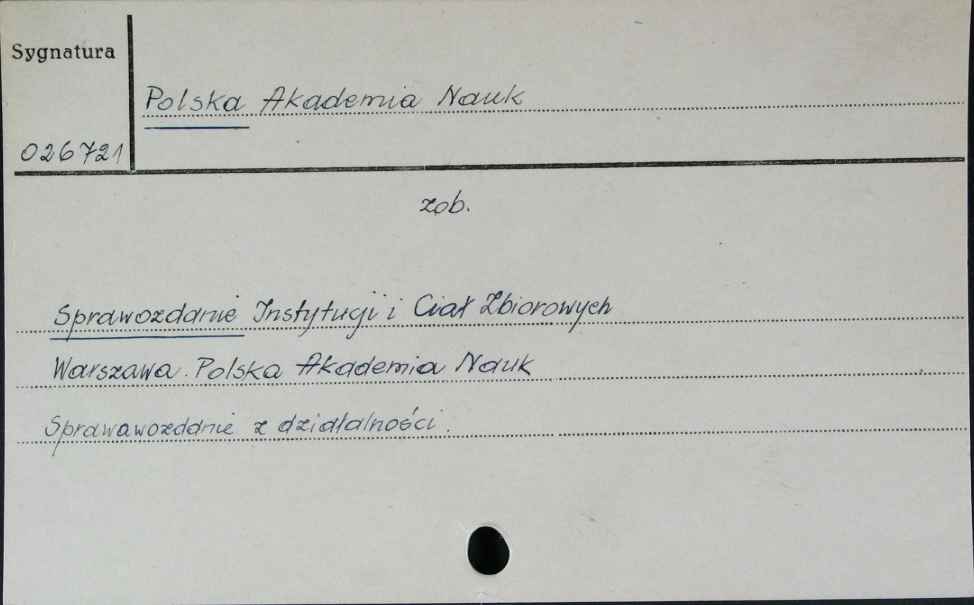 Sygnatura
Polska Akademia Nauk
026721
zob.
Sprawozdanie Instytucji i Ciał Zbiorowych
Warszawa. Polska Akademia Nauk
Sprawawozdanie z działalności.